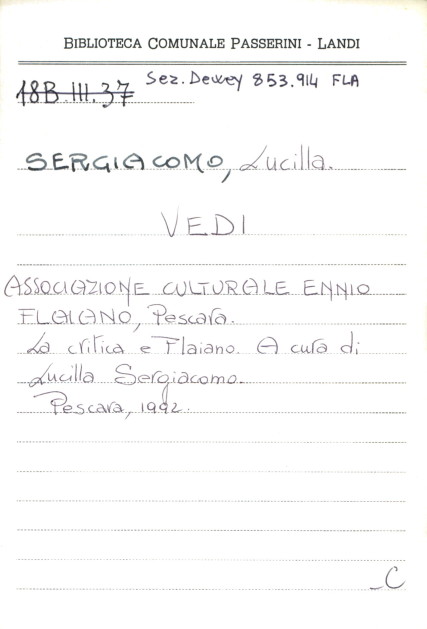 BIBLIOTECA COMUNALE PASSERINI - LANDI
18B.III.37 Sez. Dewey 853.914 FLA
SERGIACOMO, Lucilla.
VEDI
ASSOCIAZIONE CULTURALE ENNIO
FLAIANO, Pescara.
La critica e Flaiano. A cura di
Lucilla Sergiacomo.
Pescara, 1992.
C